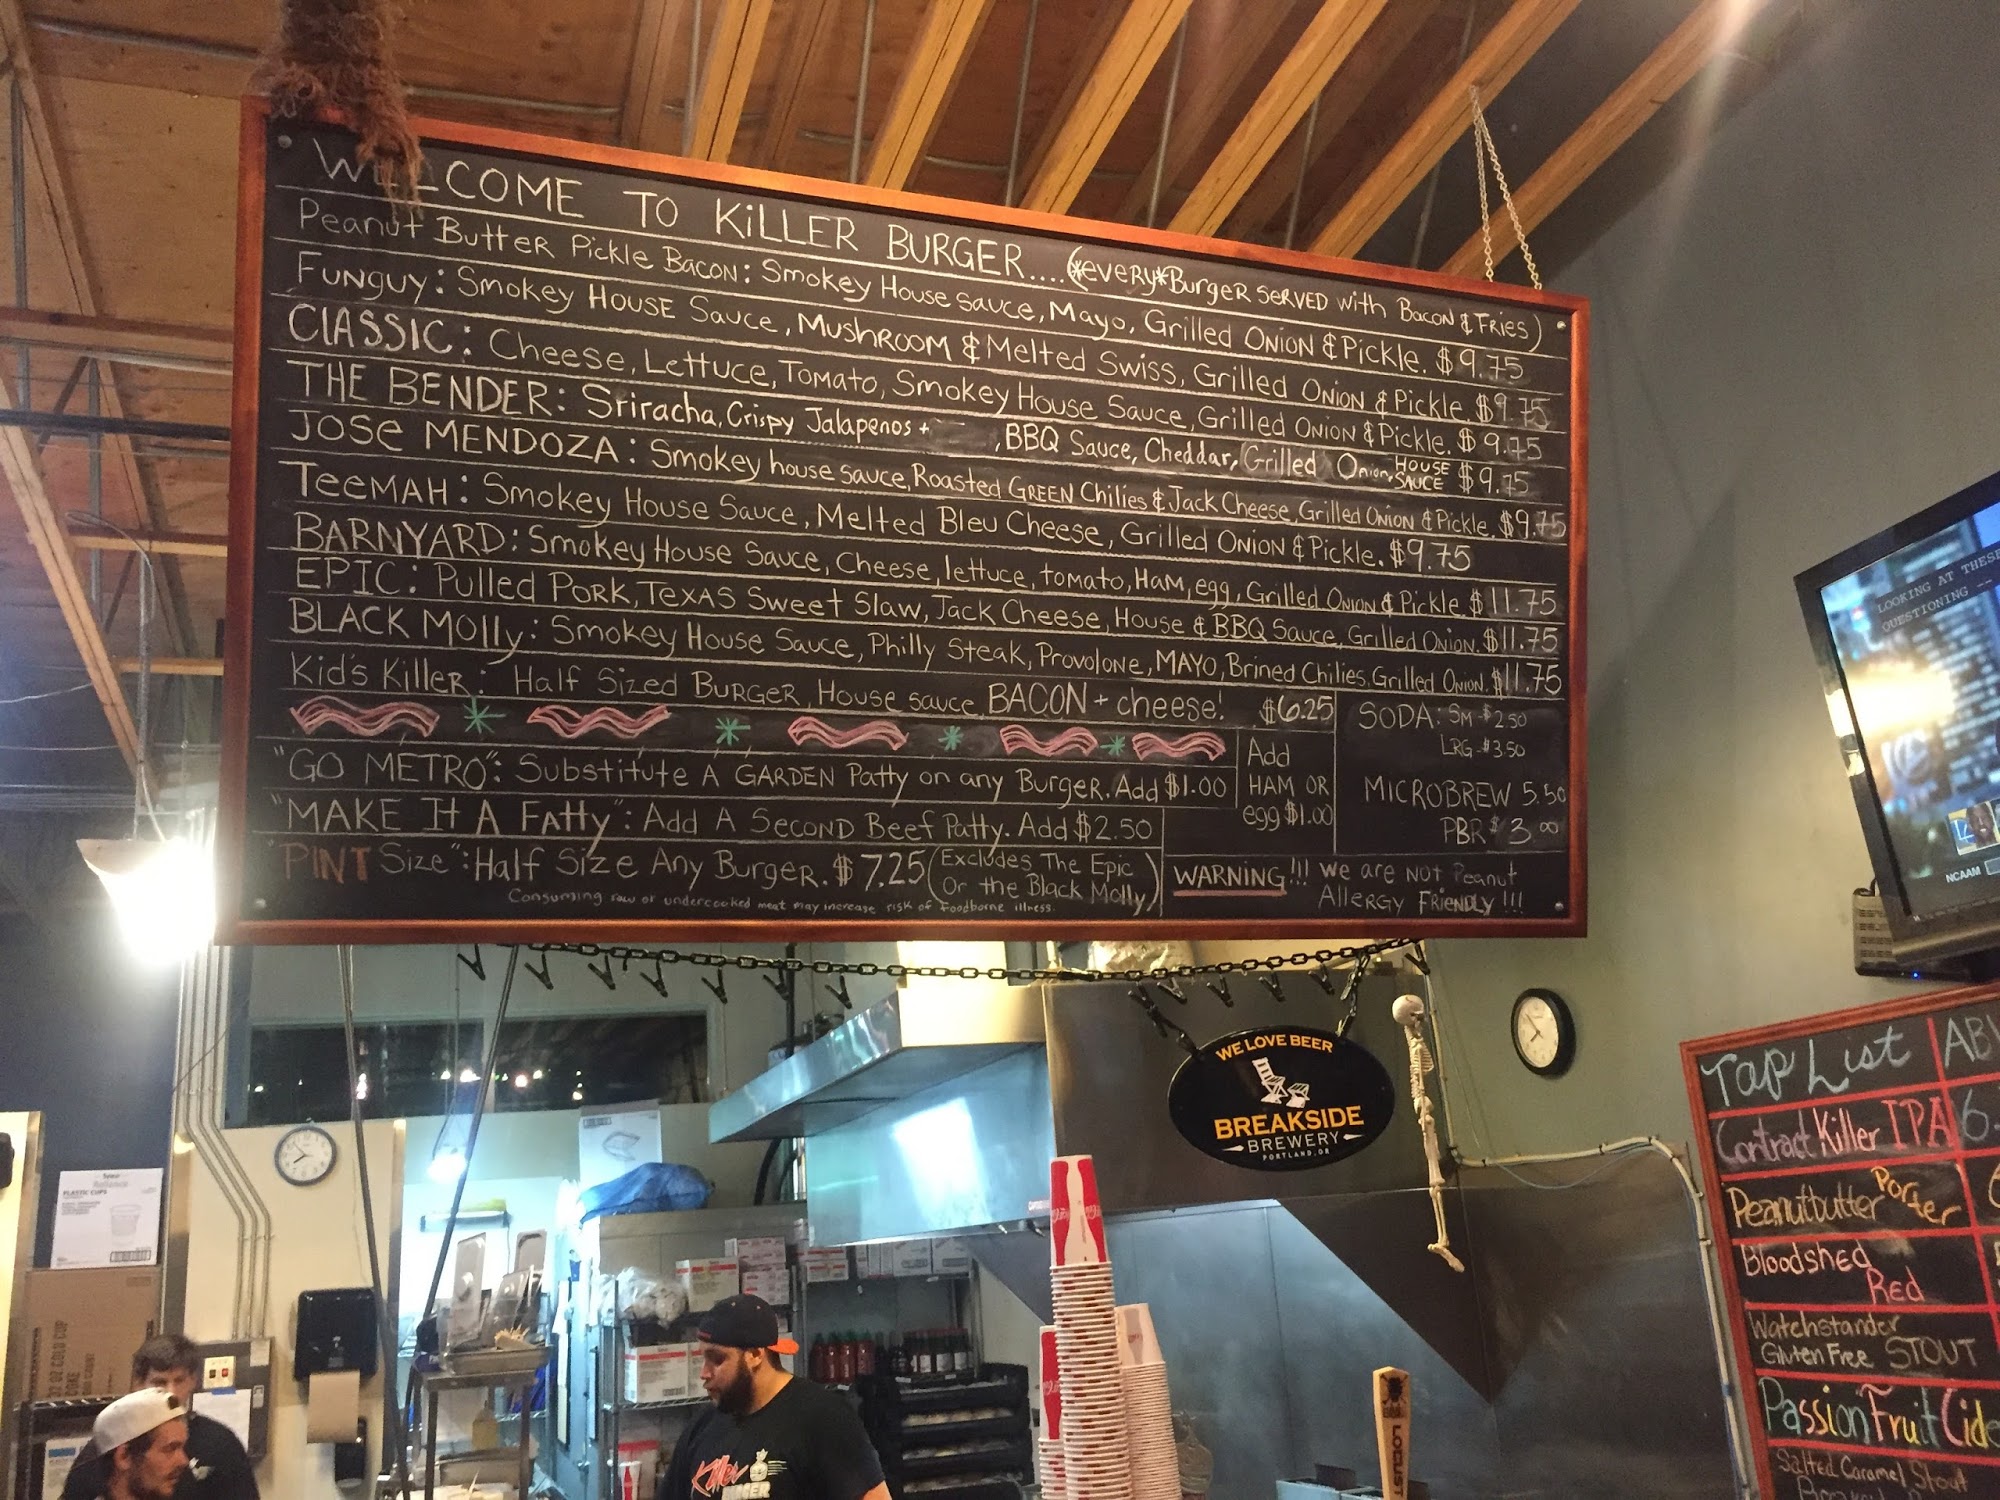 WELCOME TO KiLLER BURGER....(*every*Burger Served with Bacon & Fries)
Peanut Butter Pickle Bacon: Smokey House sauce, Mayo, Grilled Onion & Pickle. $9.75
Funguy: Smokey House Sauce, Mushroom & Melted Swiss, Grilled Onion & Pickle. $9.75
ClASSIC: Cheese, Lettuce, Tomato, Smokey House Sauce, Grilled Onion & Pickle. $9.75
THE BENDER: Sriracha, Crispy Jalapenos + , BBQ Sauce, Cheddar, Grilled Onion, HOUSE SAUCE $9.75
JOSe MENDOZA: Smokey house sauce, Roasted Green Chilies & Jack Cheese, Grilled Onion & Pickle. $9.75
TeeMAH: Smokey House Sauce, Melted Bleu Cheese, Grilled Onion & Pickle. $9.75
BARNYARD: Smokey House Sauce, Cheese, lettuce, tomato, Ham, egg, Grilled Onion & Pickle $11.75
EPIC: Pulled Pork, Texas Sweet Slaw, Jack Cheese, House & BBQ Sauce, Grilled Onion. $11.75
BLACK Molly: Smokey House Sauce, Philly Steak, Provolone, MAYO, Brined Chilies, Grilled Onion. $11.75
Kid's Killer: Half Sized Burger, House sauce, BACON + cheese! $6.25
SODA: Sm-$2.50
LRG-$3.50
MICROBREW 5.50
PBR $3.00
Add
HAM OR
egg $1.00
"GO METRO": Substitute A GARDEN Patty on any Burger. Add $1.00
"MAKE It A Fatty": Add A Second Beef Patty. Add $2.50
"PINT Size": Half Size Any Burger. $7.25 (Excludes The Epic
Or the Black Molly)
Consuming raw or undercooked meat may increase risk of foodborne illness.
WARNING!!! We are not Peanut
Allergy Friendly!!!
LOOKING AT THESE
QUESTIONING
NCAAM
WE LOVE BEER
BREAKSIDE
BREWERY
PORTLAND, OR
Tap List
Contract Killer IPA 6.
Peanutbutter Porter
Bloodshed
Red
Watchstander
Gluten Free STOUT
Passion Fruit
Salted Caramel Stout
PLASTIC CUPS
LOCUST
Killer
BURGER